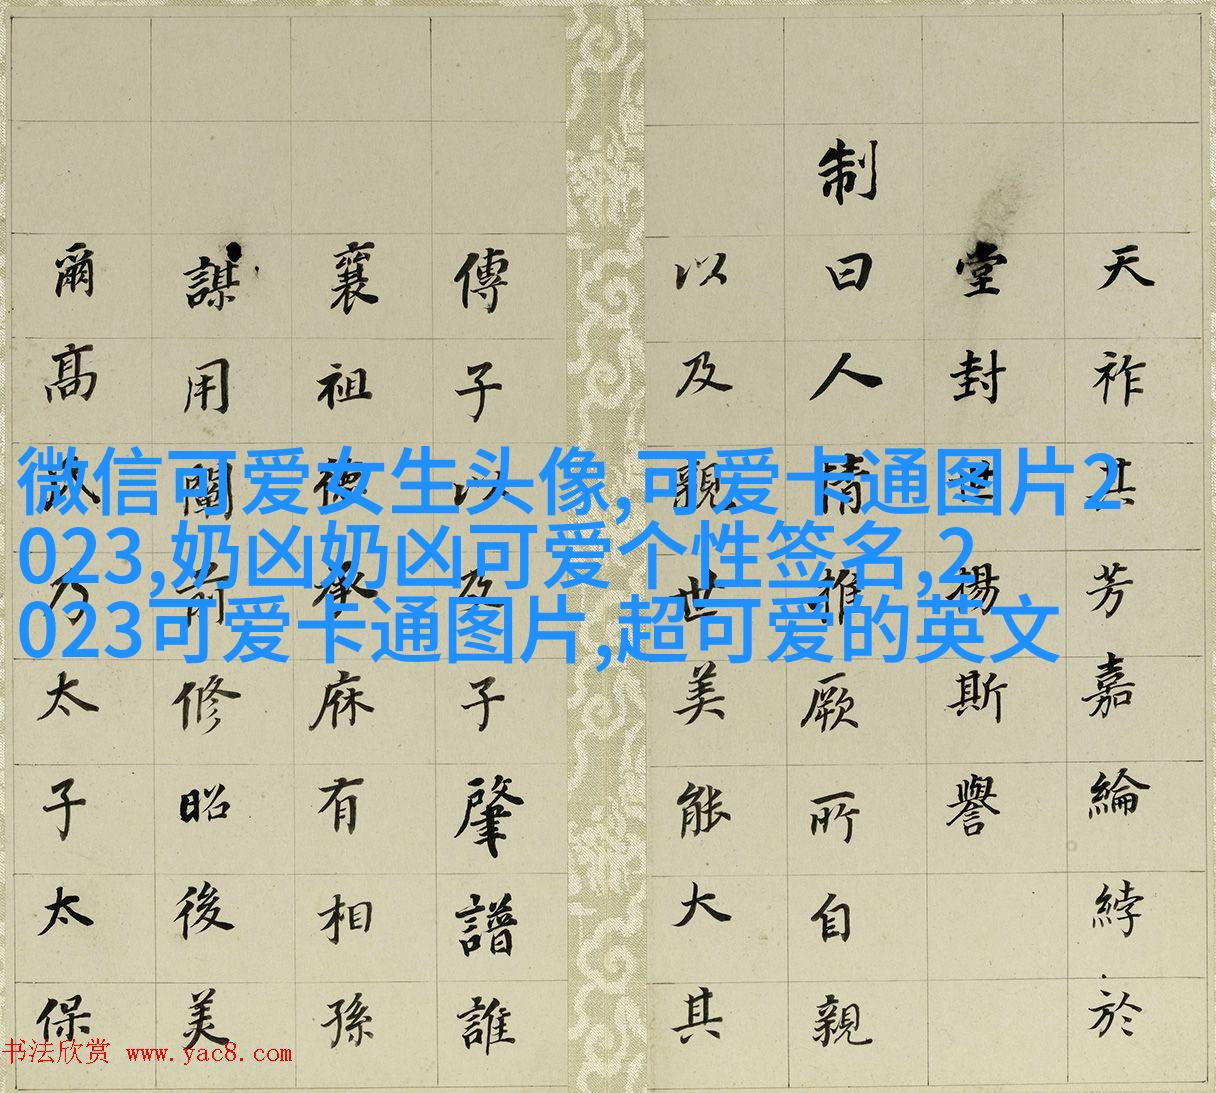 天祚其芳嘉綸綍於
堂封世揚斯譽
制曰人情推厥所自親
以及親世美能大其
傳子以及子肇譜誰
襄祖德承庥有相孫
謀用闡前修昭後美
爾高乃太子太保
微信可爱女生头像,可爱卡通图片2
023,奶凶奶凶可爱个性签名,2
023可爱卡通图片,超可爱的英文
书法欣赏 www.yac8.com